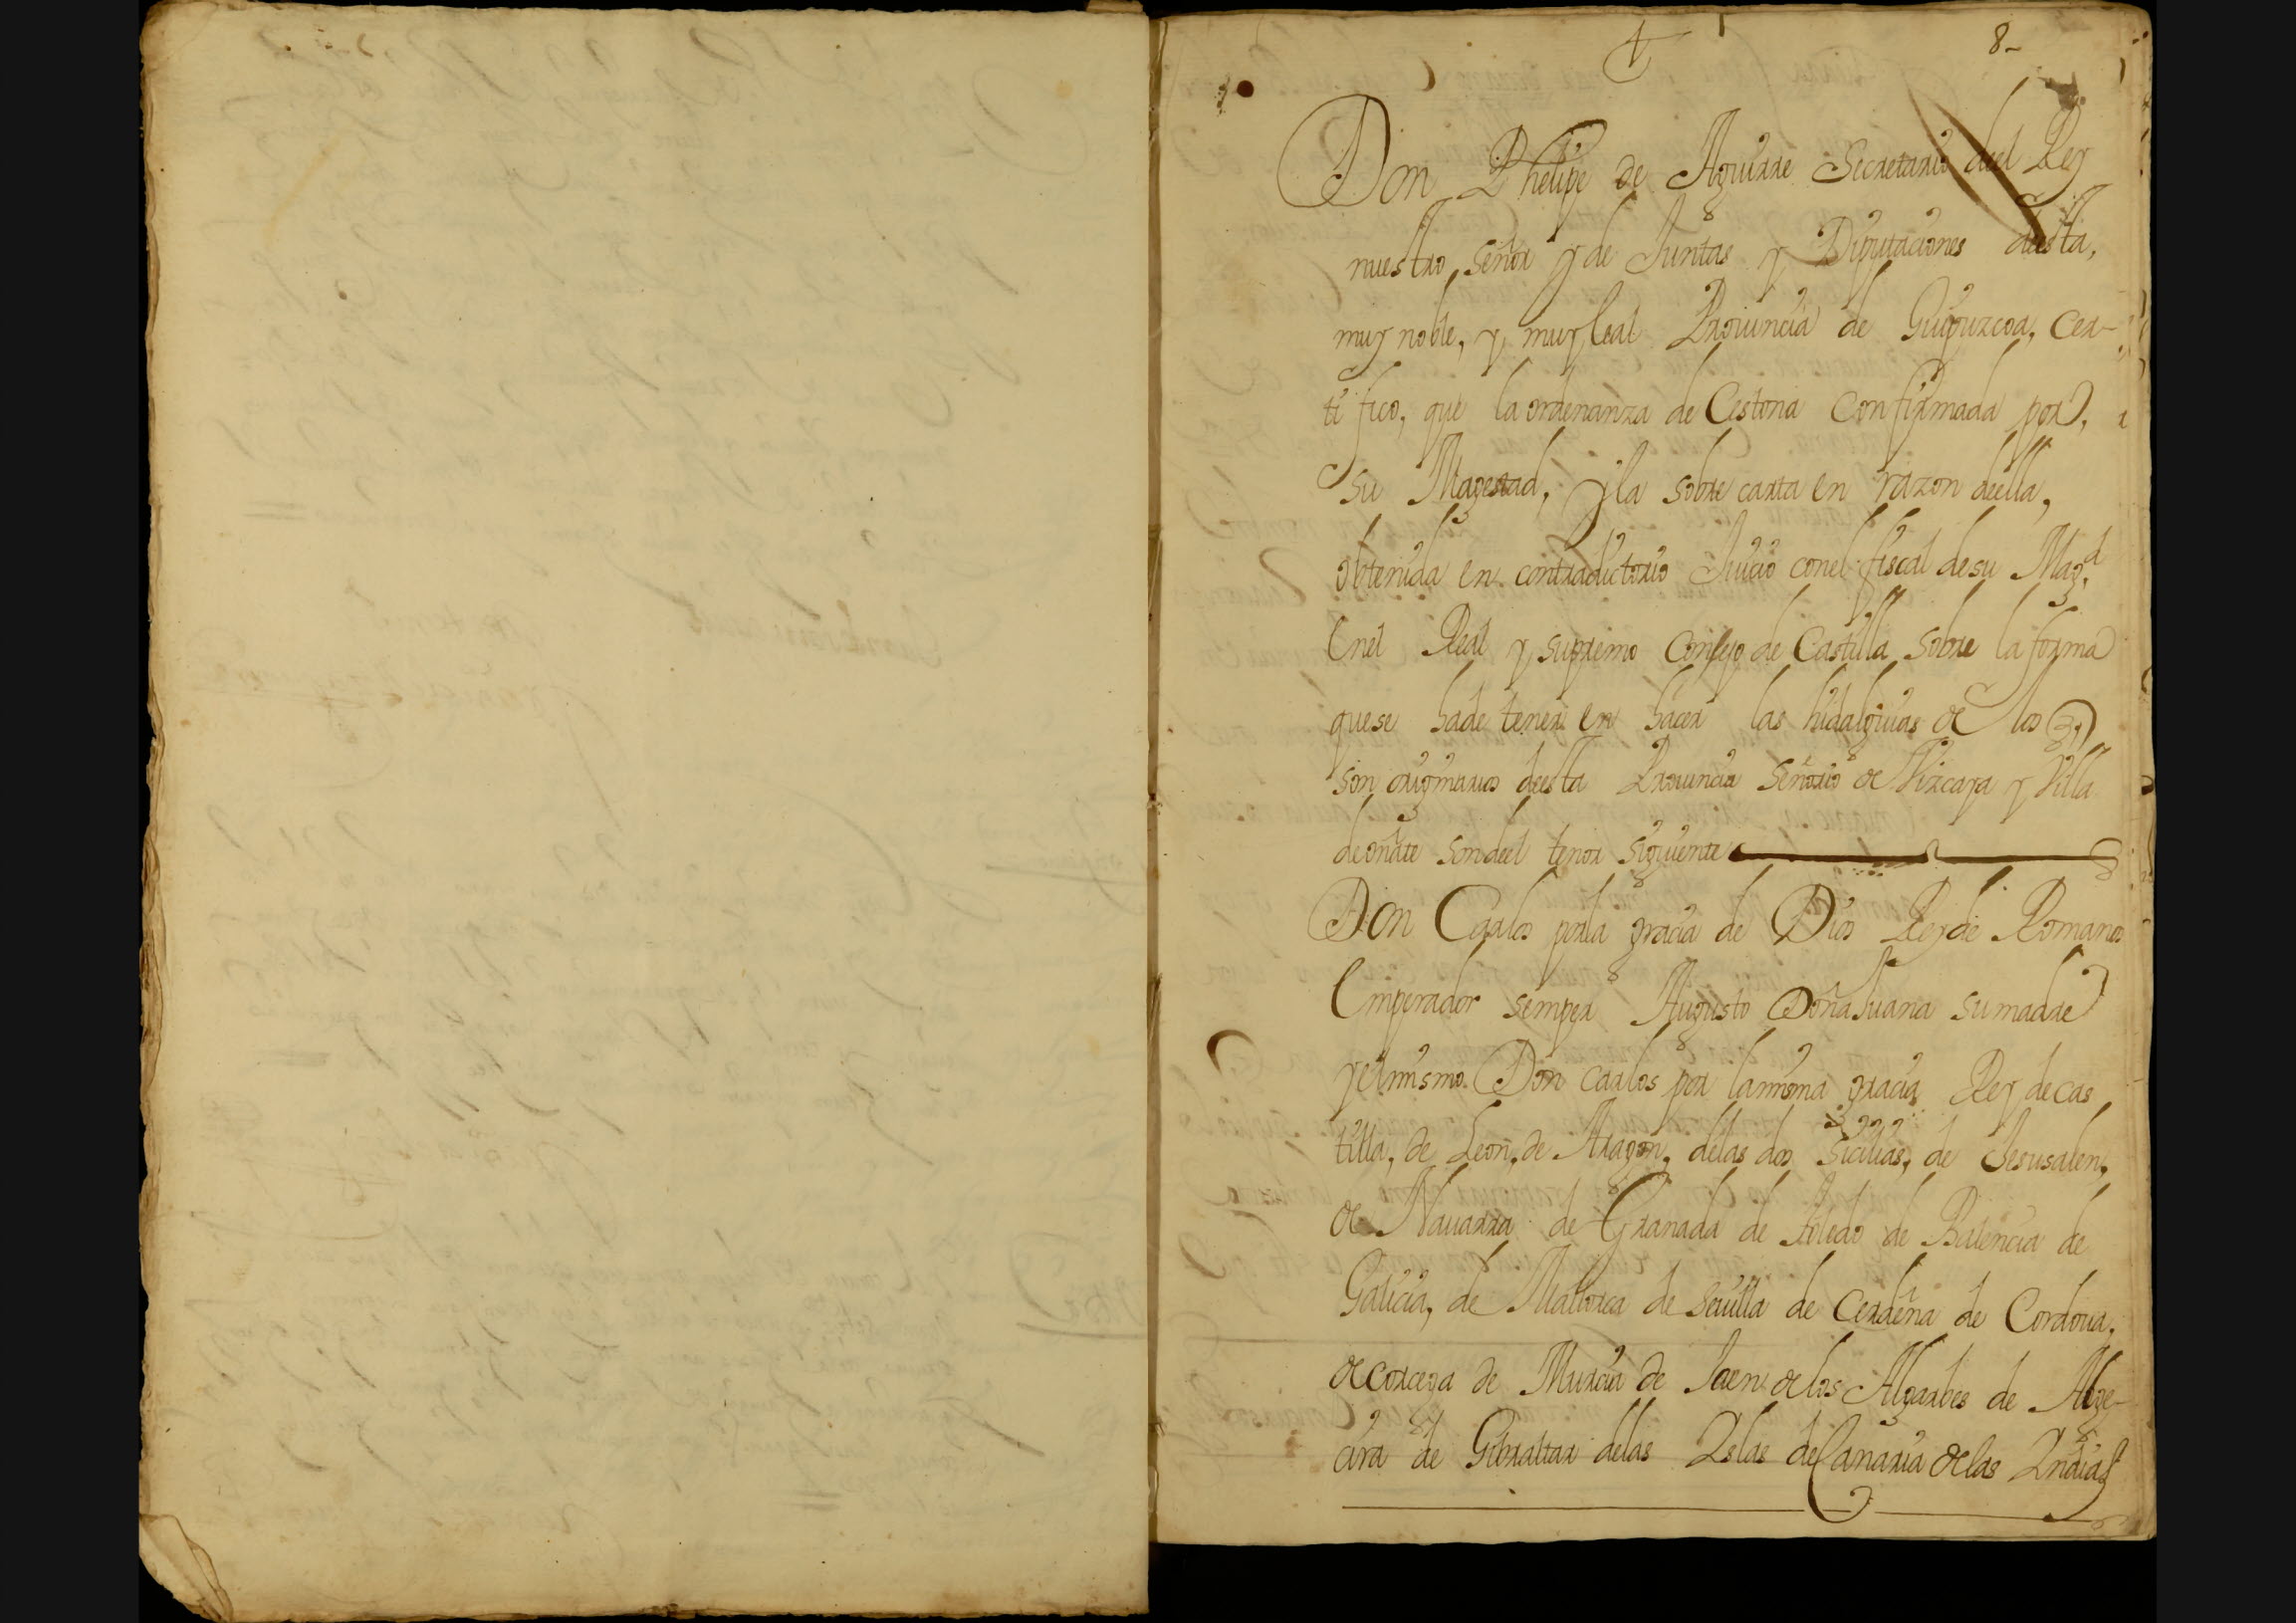 8-
Don Phelipe de Aguirre Secretario deel Rey
nuestro, señor y de Juntas y Diputaciones deesta,
muy noble, y muy leal Prouincia de Guipuzcoa, Cer-
tifico, que la ordenanza de Cestona Confirmada por,
su Magestad, y la sobre carta en razon deella,
obtenida en contradictorio Juicio conel fiscal de su Magd
Enel Real y supremo Consejo de Castilla sobre la forma
que se hade tener en hacer las hidalguias de los q
son originarios deesta Prouincia Señorio de Vizcaya y Villa
de oñate son deel tenor siguiente
Don Carlos por la gracia de Dios Rey de Romanos
Emperador semper Augusto Doña Juana su madre
y el mismo Don Carlos por la misma gracia Rey de Cas
tilla, de Leon, de Aragon, de las dos Sicilias, de Jerusalen,
de Nauarra de Granada de toledo de Balencia de
Galicia, de Mallorca de Seuilla de Cerdeña de Cordoua,
de corcega de Murcia de Jaen de los Algarbes de Alge-
cira de Gibraltar de las Islas de Canaria de las Indias